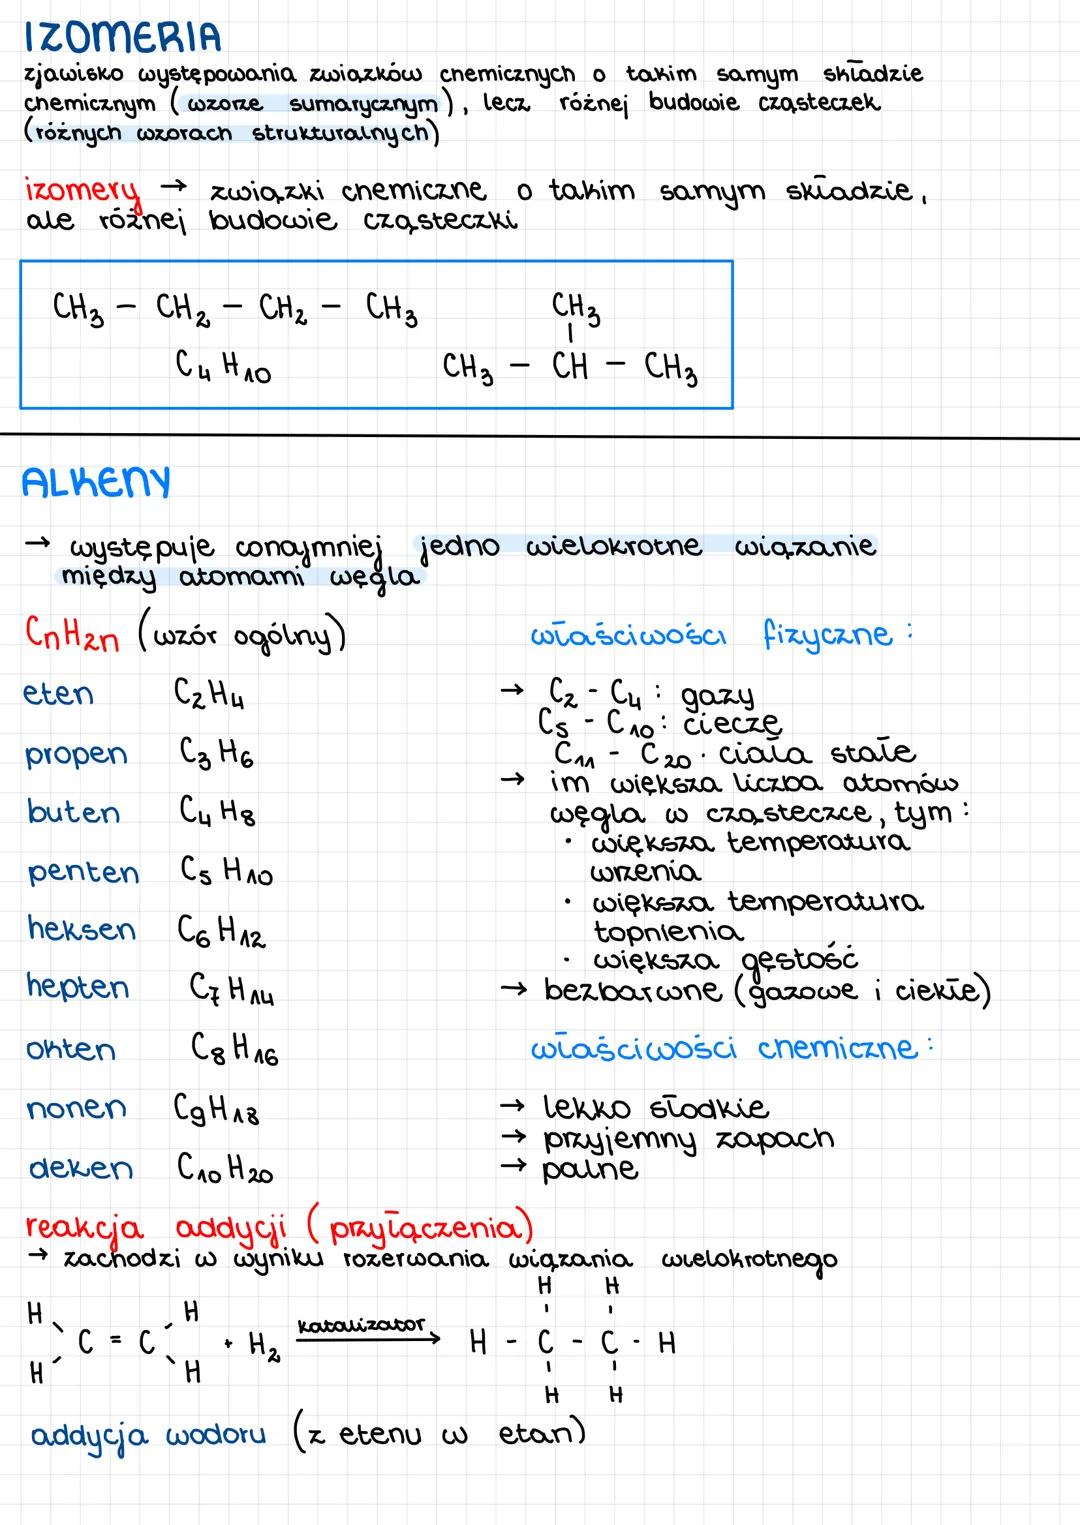 IZOMERIA
zjawisko występowania związków chemicznych o takim samym składzie
chemicznym (wzorze sumarycznym), lecz różnej budowie cząsteczek
(różnych wzorach strukturalnych)
izomery → związki chemiczne o takim samym składzie,
ale różnej budowie cząsteczki
CH₃ - CH₂ - CH₂ - CH₃
C₄H₁₀
CH₃
|
CH₃ - CH - CH₃
ALKENY
→ występuje conajmniej jedno wielokrotne wiązanie
między atomami węgla
CnH2n (wzór ogólny)
eten C₂H₄
propen C₃H₆
buten C₄H₈
penten C₅H₁₀
heksen C₆H₁₂
hepten C₇H₁₄
okten C₈H₁₆
nonen C₉H₁₈
deken C₁₀H₂₀
właściwości fizyczne:
→ C₂ - C₄: gazy
C₅ - C₁₀: ciecze
C₁₁ - C₂₀: ciała stałe
→ im większa liczba atomów
węgla w cząsteczce, tym:
· większa temperatura
wrzenia
· większa temperatura
topnienia
· większa gęstość
→ bezbarwne (gazowe i ciekłe)
właściwości chemiczne:
→ lekko słodkie
→ przyjemny zapach
→ palne
reakcja addycji (przyłączenia)
→ zachodzi w wyniku rozerwania wiązania wielokrotnego
H H H H
C = C + H₂ katalizator → H - C - C - H
H H H H
addycja wodoru (z etenu w etan)